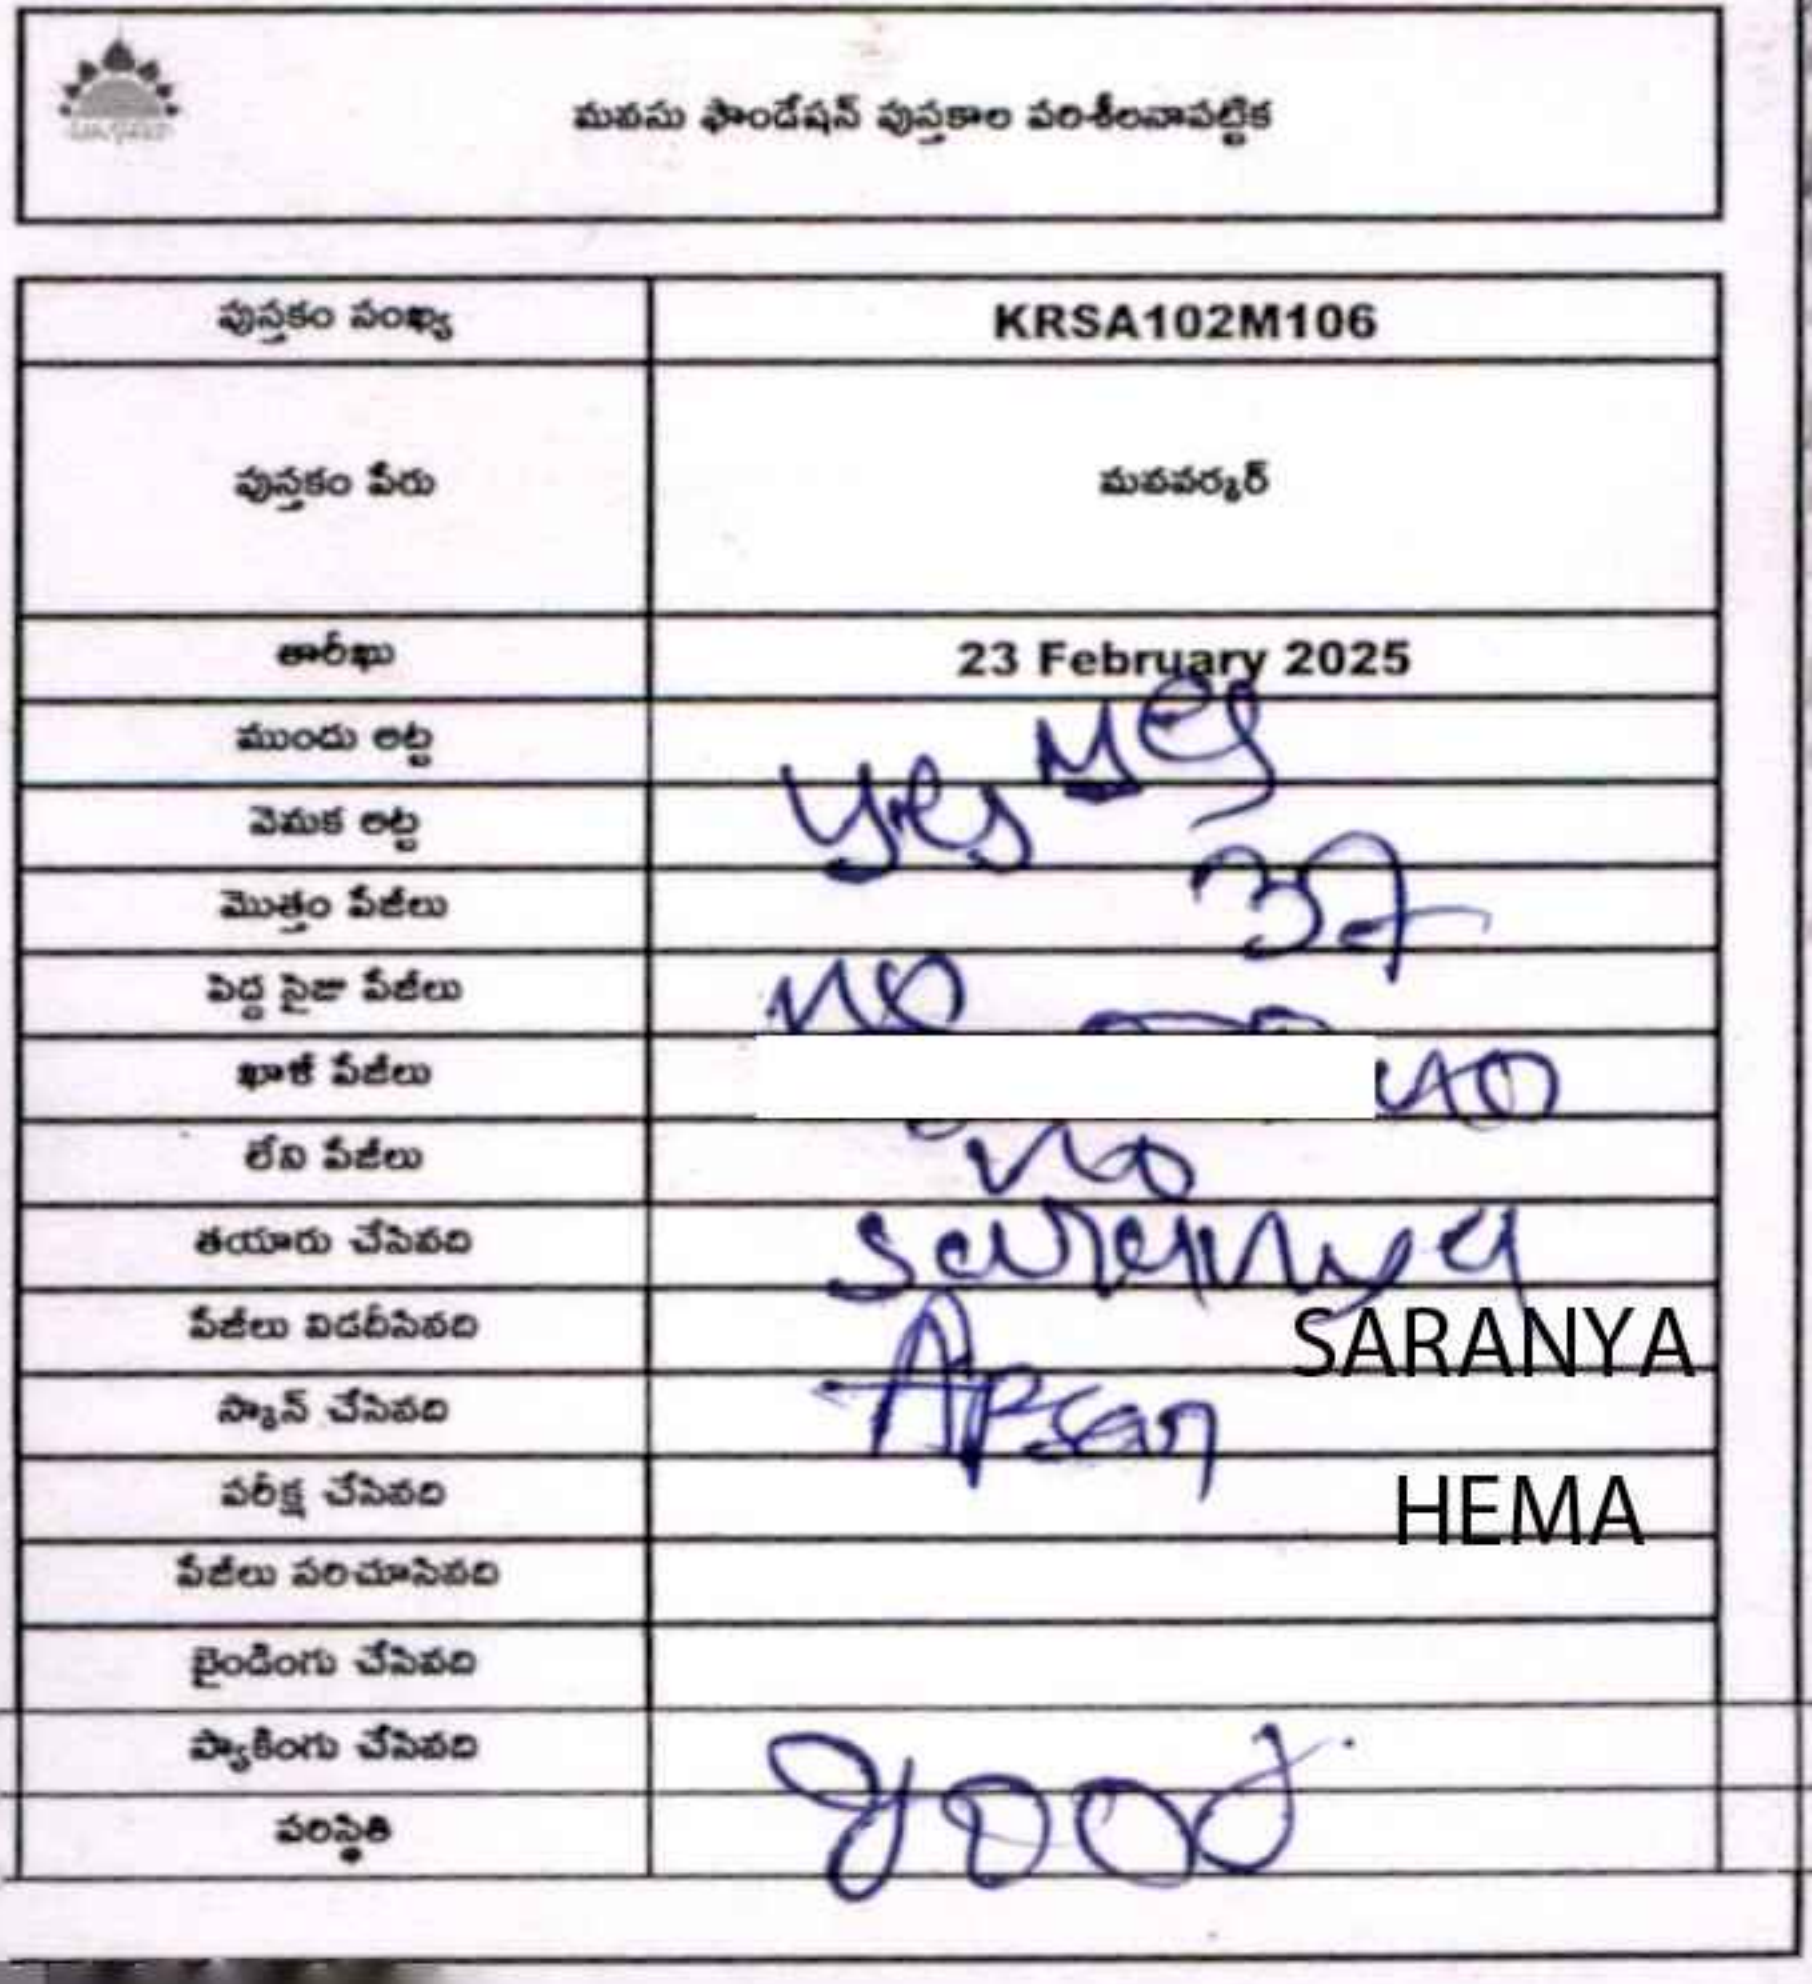 మనసు ఫౌండేషన్ పుస్తకాల పరిశీలనాపట్టిక
పుస్తకం సంఖ్య KRSA102M106
పుస్తకం పేరు మనవర్కర్
తారీఖు 23 February 2025
ముందు అట్ట yes
వెనుక అట్ట yes
మొత్తం పేజీలు 37
పెద్ద సైజు పేజీలు no
ఖాళీ పేజీలు no
లేని పేజీలు no
తయారు చేసినది saranya
పేజీలు విడదీసినది SARANYA
స్కాన్ చేసినది Apsan
పరీక్ష చేసినది HEMA
పేజీలు సరిచూసినది
బైండింగు చేసినది
ప్యాకింగు చేసినది
పరిస్థితి good